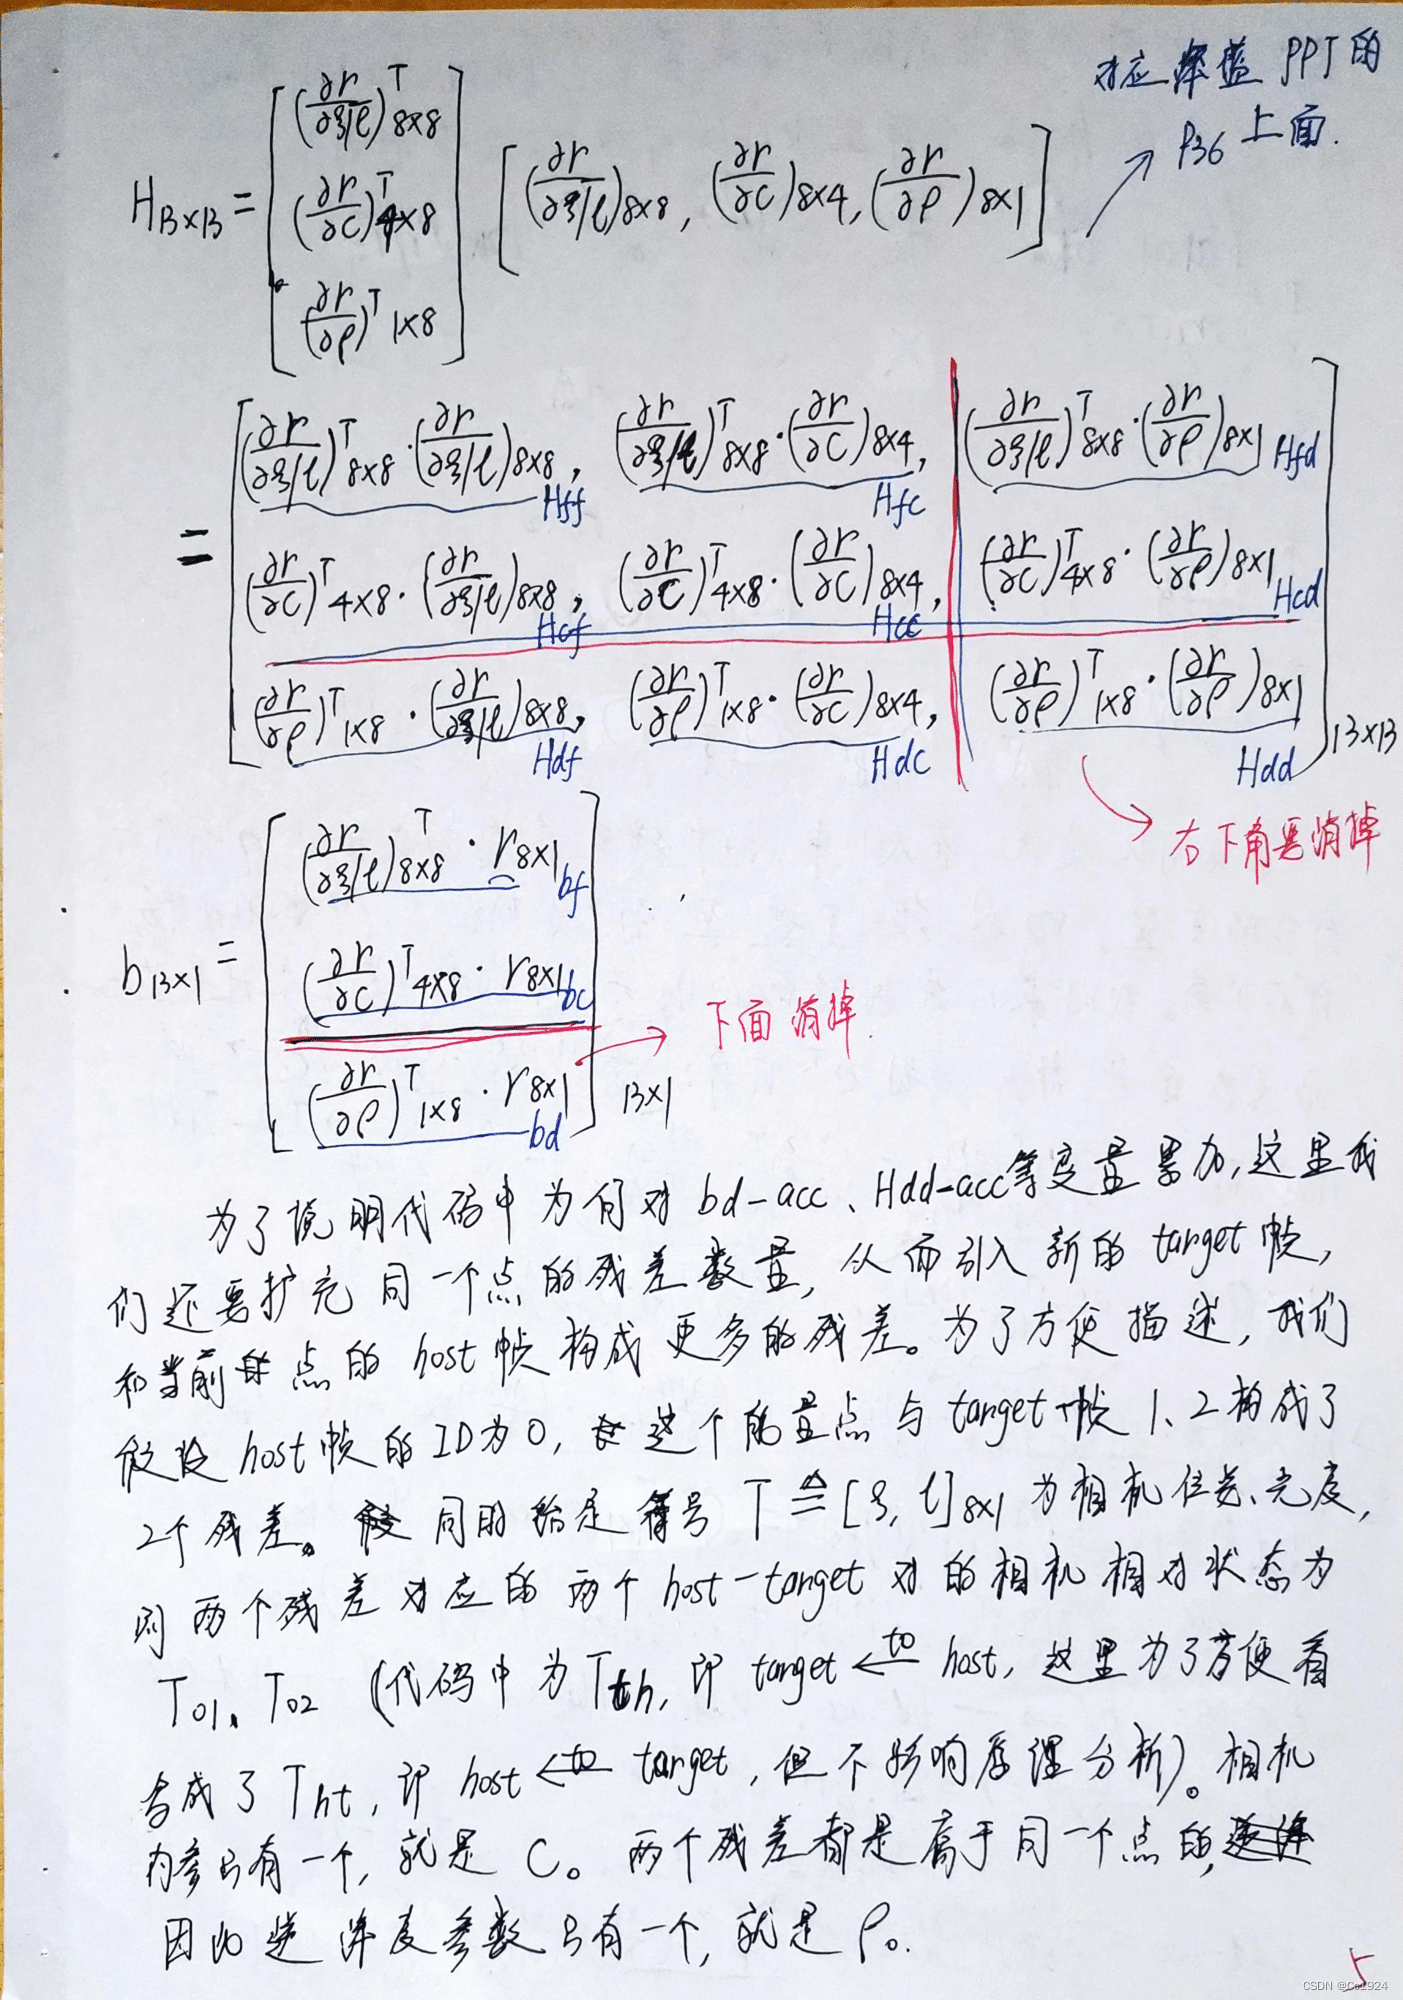 对应深蓝 PPT的
P36 上面.
H13×13 = [ (∂r/∂ξ/l)ᵀ8×8
(∂r/∂C)ᵀ4×8
(∂r/∂ρ)ᵀ1×8 ] [ (∂r/∂ξ/l)8×8, (∂r/∂C)8×4, (∂r/∂ρ)8×1 ]
= [ (∂r/∂ξ/l)ᵀ8×8 · (∂r/∂ξ/l)8×8, Hff (∂r/∂ξ/l)ᵀ8×8 · (∂r/∂C)8×4, Hfc (∂r/∂ξ/l)ᵀ8×8 · (∂r/∂ρ)8×1 Hfd
(∂r/∂C)ᵀ4×8 · (∂r/∂ξ/l)8×8, Hcf (∂r/∂C)ᵀ4×8 · (∂r/∂C)8×4, Hcc (∂r/∂C)ᵀ4×8 · (∂r/∂ρ)8×1 Hcd
(∂r/∂ρ)ᵀ1×8 · (∂r/∂ξ/l)8×8, Hdf (∂r/∂ρ)ᵀ1×8 · (∂r/∂C)8×4, Hdc (∂r/∂ρ)ᵀ1×8 · (∂r/∂ρ)8×1 Hdd ]13×13
右下角要消掉
b13×1 = [ (∂r/∂ξ/l)ᵀ8×8 · r8×1 bf
(∂r/∂C)ᵀ4×8 · r8×1 bc
(∂r/∂ρ)ᵀ1×8 · r8×1 bd ] 13×1
下面消掉.
为了说明代码中为何对 bd-acc、Hdd-acc等变量累加,这里我
们还要扩充同一个点的残差数量,从而引入新的target帧,
和当前点的host帧构成更多的残差。为了方便描述,我们
假设host帧的ID为0,这个能量点与target帧1、2构成了
2个残差。同时给定符号 T ≜ [ξ, l]8×1 为相机位姿、光度,
则两个残差对应的两个host-target对的相机相对状态为
T01、T02 (代码中为Tth,即 target ←to host,这里为了方便看
写成了 Tht,即 host ←to target,但不影响原理分析)。相机
内参只有一个,就是 C。两个残差都是属于同一个点的,
因此逆深度参数只有一个,就是 ρ。
5
CSDN @Cc1924